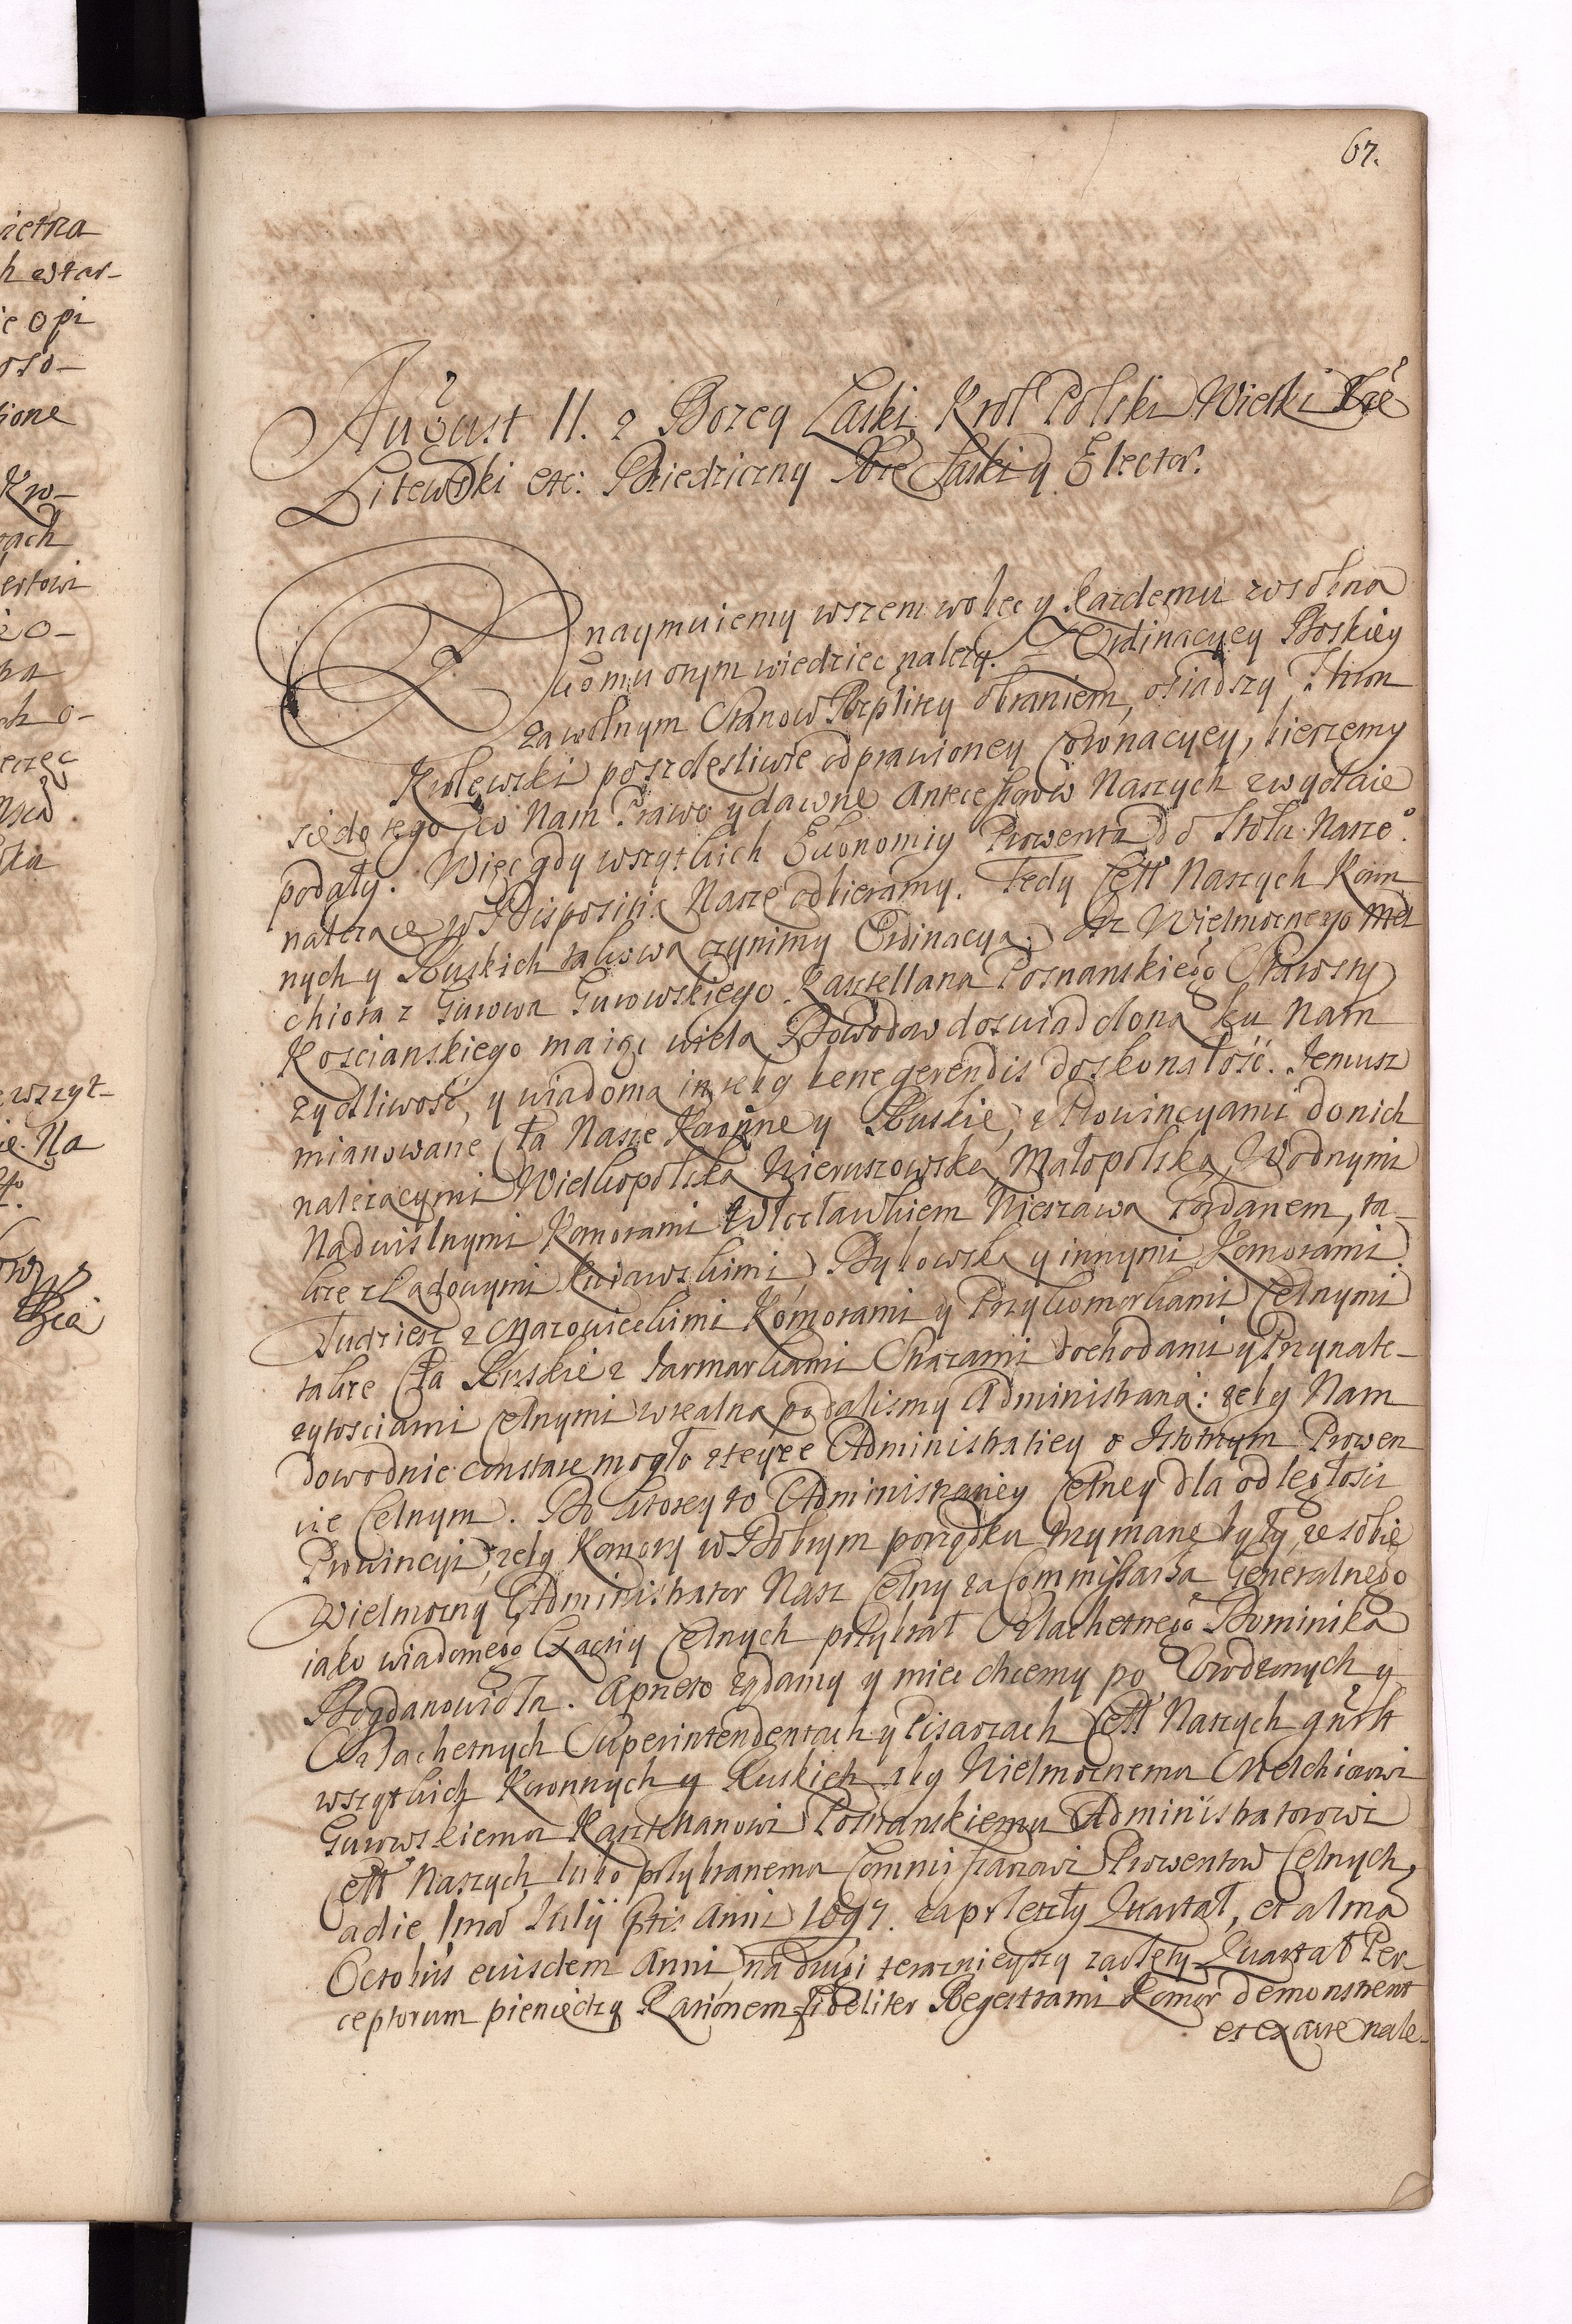 67.
August II. z Bozey Laski Krol Polski Wielki Xże
Litewski etc: Dziedziczny Xże Saski y Elector.
Oznaymuiemy wszem wobec y kazdemu zosobna
komu o tym wiedziec nalezy. Z Ordinacyey Boskiey
za wolnym Stanow Rzplitey obraniem, osiadszy Thron
Krolewski po szczęsliwie odprawioney Coronacyey, bierzemy
się do tego co Nam Prawo y dawne Antecessorow Naszych zwyczaie
podały. Więc gdy wszytkich Ekonomiy Prowenta do Stołu Nasze°
nalezące w Dispositią Nasze odbieramy. Tedy Ceł Naszych Koron
nych y Ruskich takową czynimy Ordinacyą. Iz Wielmoznego Mel
chiora z Gurowa Gurowskiego Kasztellana Poznanskiego Starosty
Koscianskiego maiąc wielą Dowodow doswiadczoną ku Nam
zyczliwość, y wiadomą in rebus bene gerendis doskonałość. Jemusz
mianowane Cła Nasze Koronne y Ruskie, z Prowincyami do nich
nalezącymi Wielkopolską Wieruszowską, Małopolską, Wodnymi
Nadwislnymi Komorami Włocławkiem Nieszawą Fordanem, ta-
kze z Lądowymi Kuiawskimi, Bytowską y innymi Komorami.
Tudziesz z Mazowieckimi Komorami y Przykomorkami Celnymi
takze Cła Ruskie z Jarmarkami Strazami dochodami y Przynale-
zytosciami Celnymi w realną podalismy Administratią: zeby Nam
dowodnie constare mogło z teyze Administratiey o Istotnym Prowen
cie Celnym. Do ktorey to Administratiey Celney dla odległosci
Prowincyi, zeby Komory w Dobrym porządku trzymane były, ze sobie
Wielmozny Administrator Nasz Celny za Commissarza Generalnego
iako wiadomego Exactiy Celnych przybrał Szlachetnego Dominika
Bogdanowicza. A przeto ządamy y miec chcemy po Urodzonych y
Szlachetnych Superintendentach y Pisarzach Ceł Naszych gñrlr
wszytkich Koronnych y Ruskich aby Wielmoznemu Melchiorowi
Gurowskiemu Kasztellanowi Poznanskiemu Administratorowi
Ceł Naszych, lubo przybranemu Commissarzowi Prowentow Celnych,
a die 1ma Julij ptis Anni 1697. za przeszły Kwartał, et a 1ma
Octobris eiusdem Anni, na drugi teraznieyszy zaczęty Kwartał Per-
ceptorum pieniedzy Rationem fideliter Regestrami Komor demonstrent
et exacte nale-